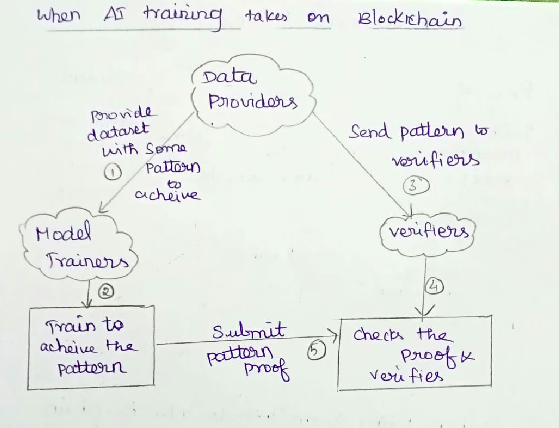 When AI training takes on Blockchain
Data
Providers
provide
dataset
with some
pattern
to
acheive
①
Send pattern to
verifiers
③
Model
Trainers
verifiers
②
④
Train to
acheive the
pattern
Submit
pattern
proof
⑤
checks the
proof &
verifies